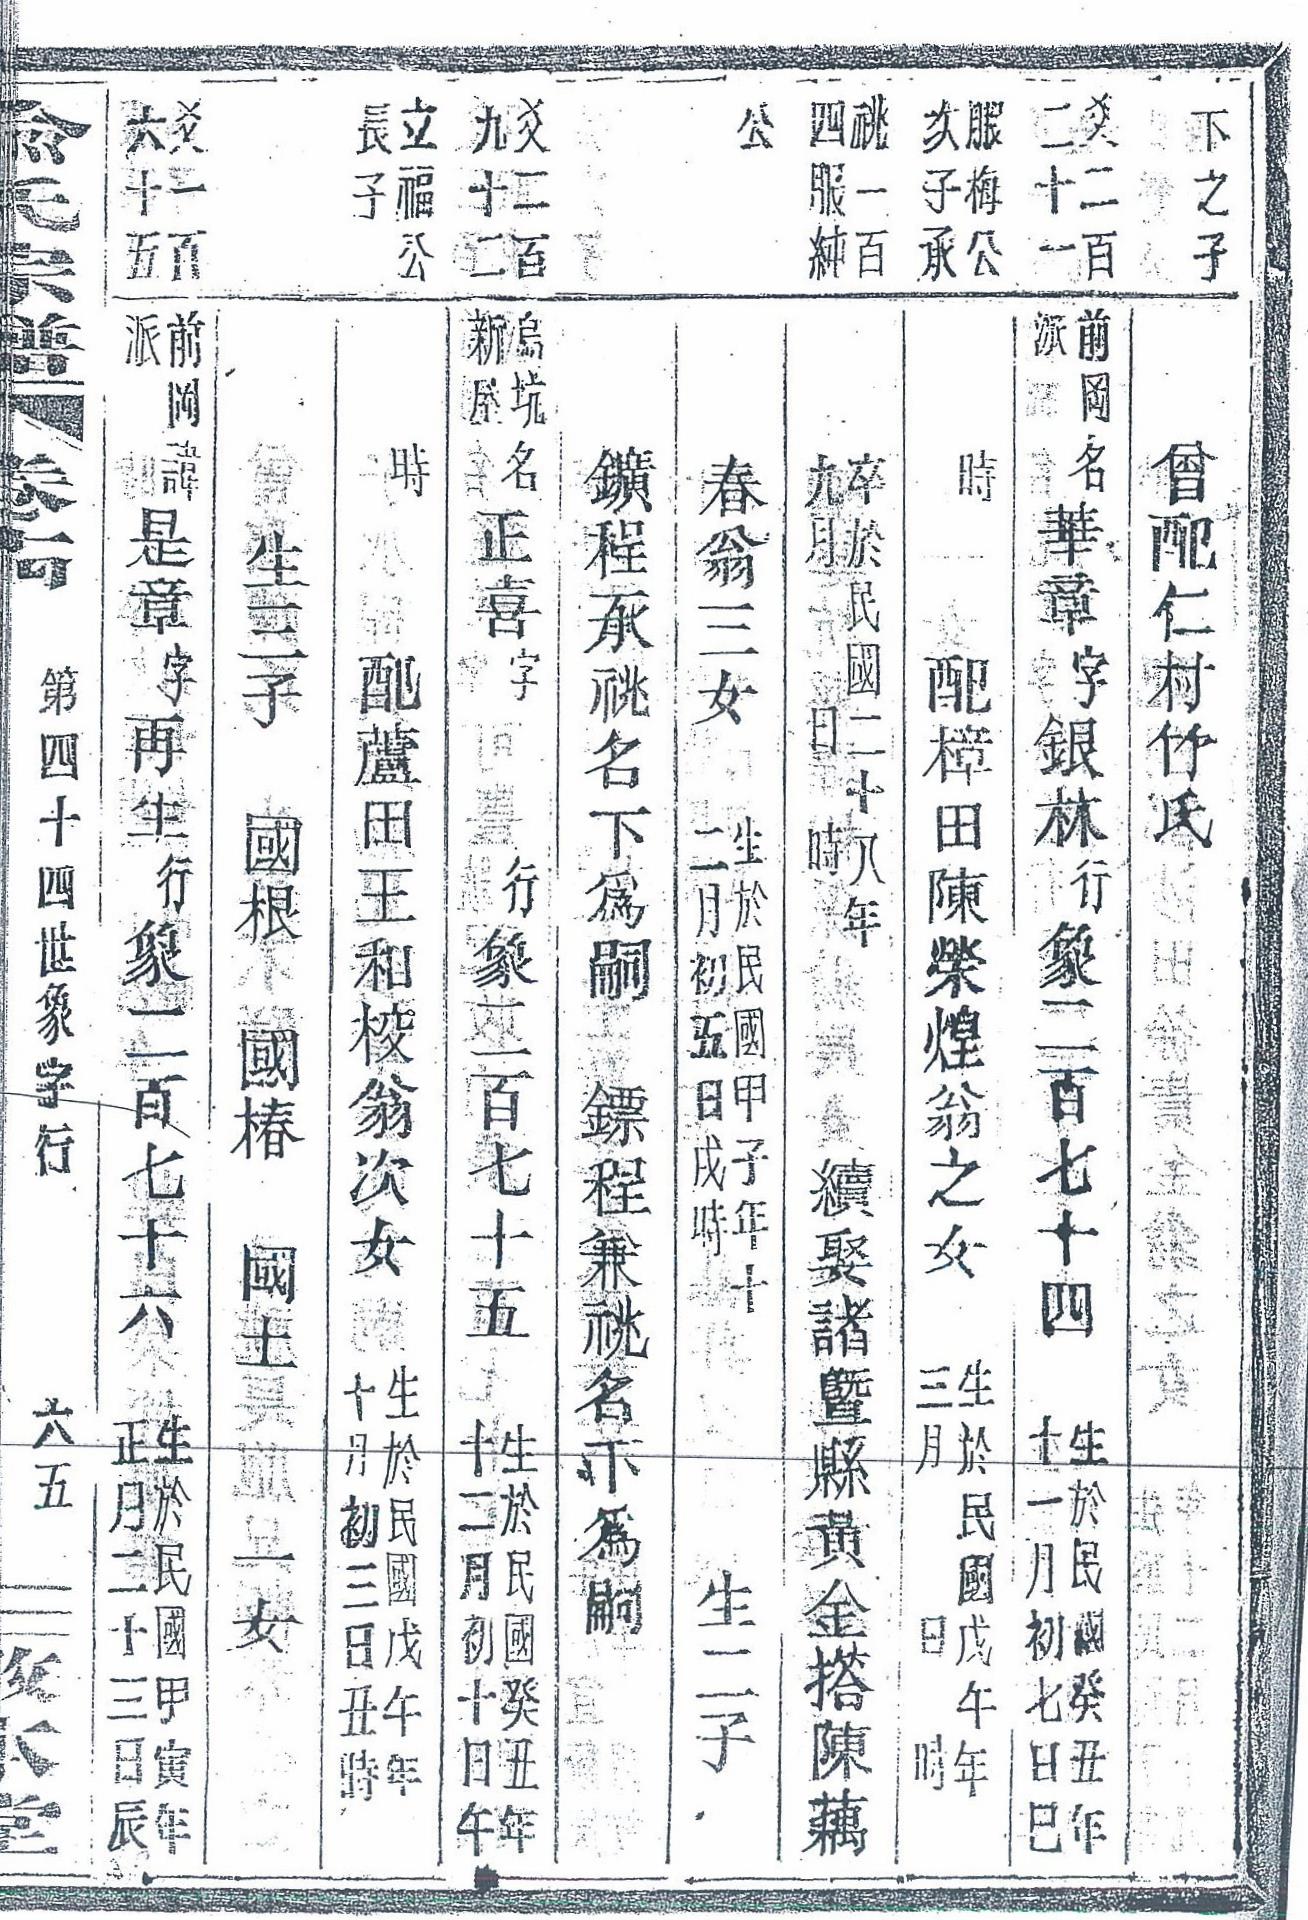 下之子
曾配仁村竹氏
爻二百
二十一
前岡
派
名華章字銀林行象二百七十四
生於民國癸丑年
十一月初七日巳
服梅公
次子承
時
配樟田陳榮煌翁之女
生於民國戊午年
三月 日 時
祧一百
四服純
卒於民國二十八年
九月 日 時
續娶諸暨縣黃金搭陳藕
公
春翁三女
生於民國甲子年十
二月初五日戌時
生二子
鑛程承祧名下為嗣 鏢程兼祧名下為嗣
爻二百
九十二
烏坑
新屋
名正喜字 行象二百七十五
生於民國癸丑年
十二月初十日午
立福公
長子
時
配蘆田王和梭翁次女
生於民國戊午年
十月初三日丑時
生三子 國根 國椿 國土 一女
爻一百
六十五
前岡
派
諱是章字再生行象二百七十六
生於民國甲寅年
正月二十三日辰
俞氏宗譜 卷二 第四十四世象字行 六五 敦本堂